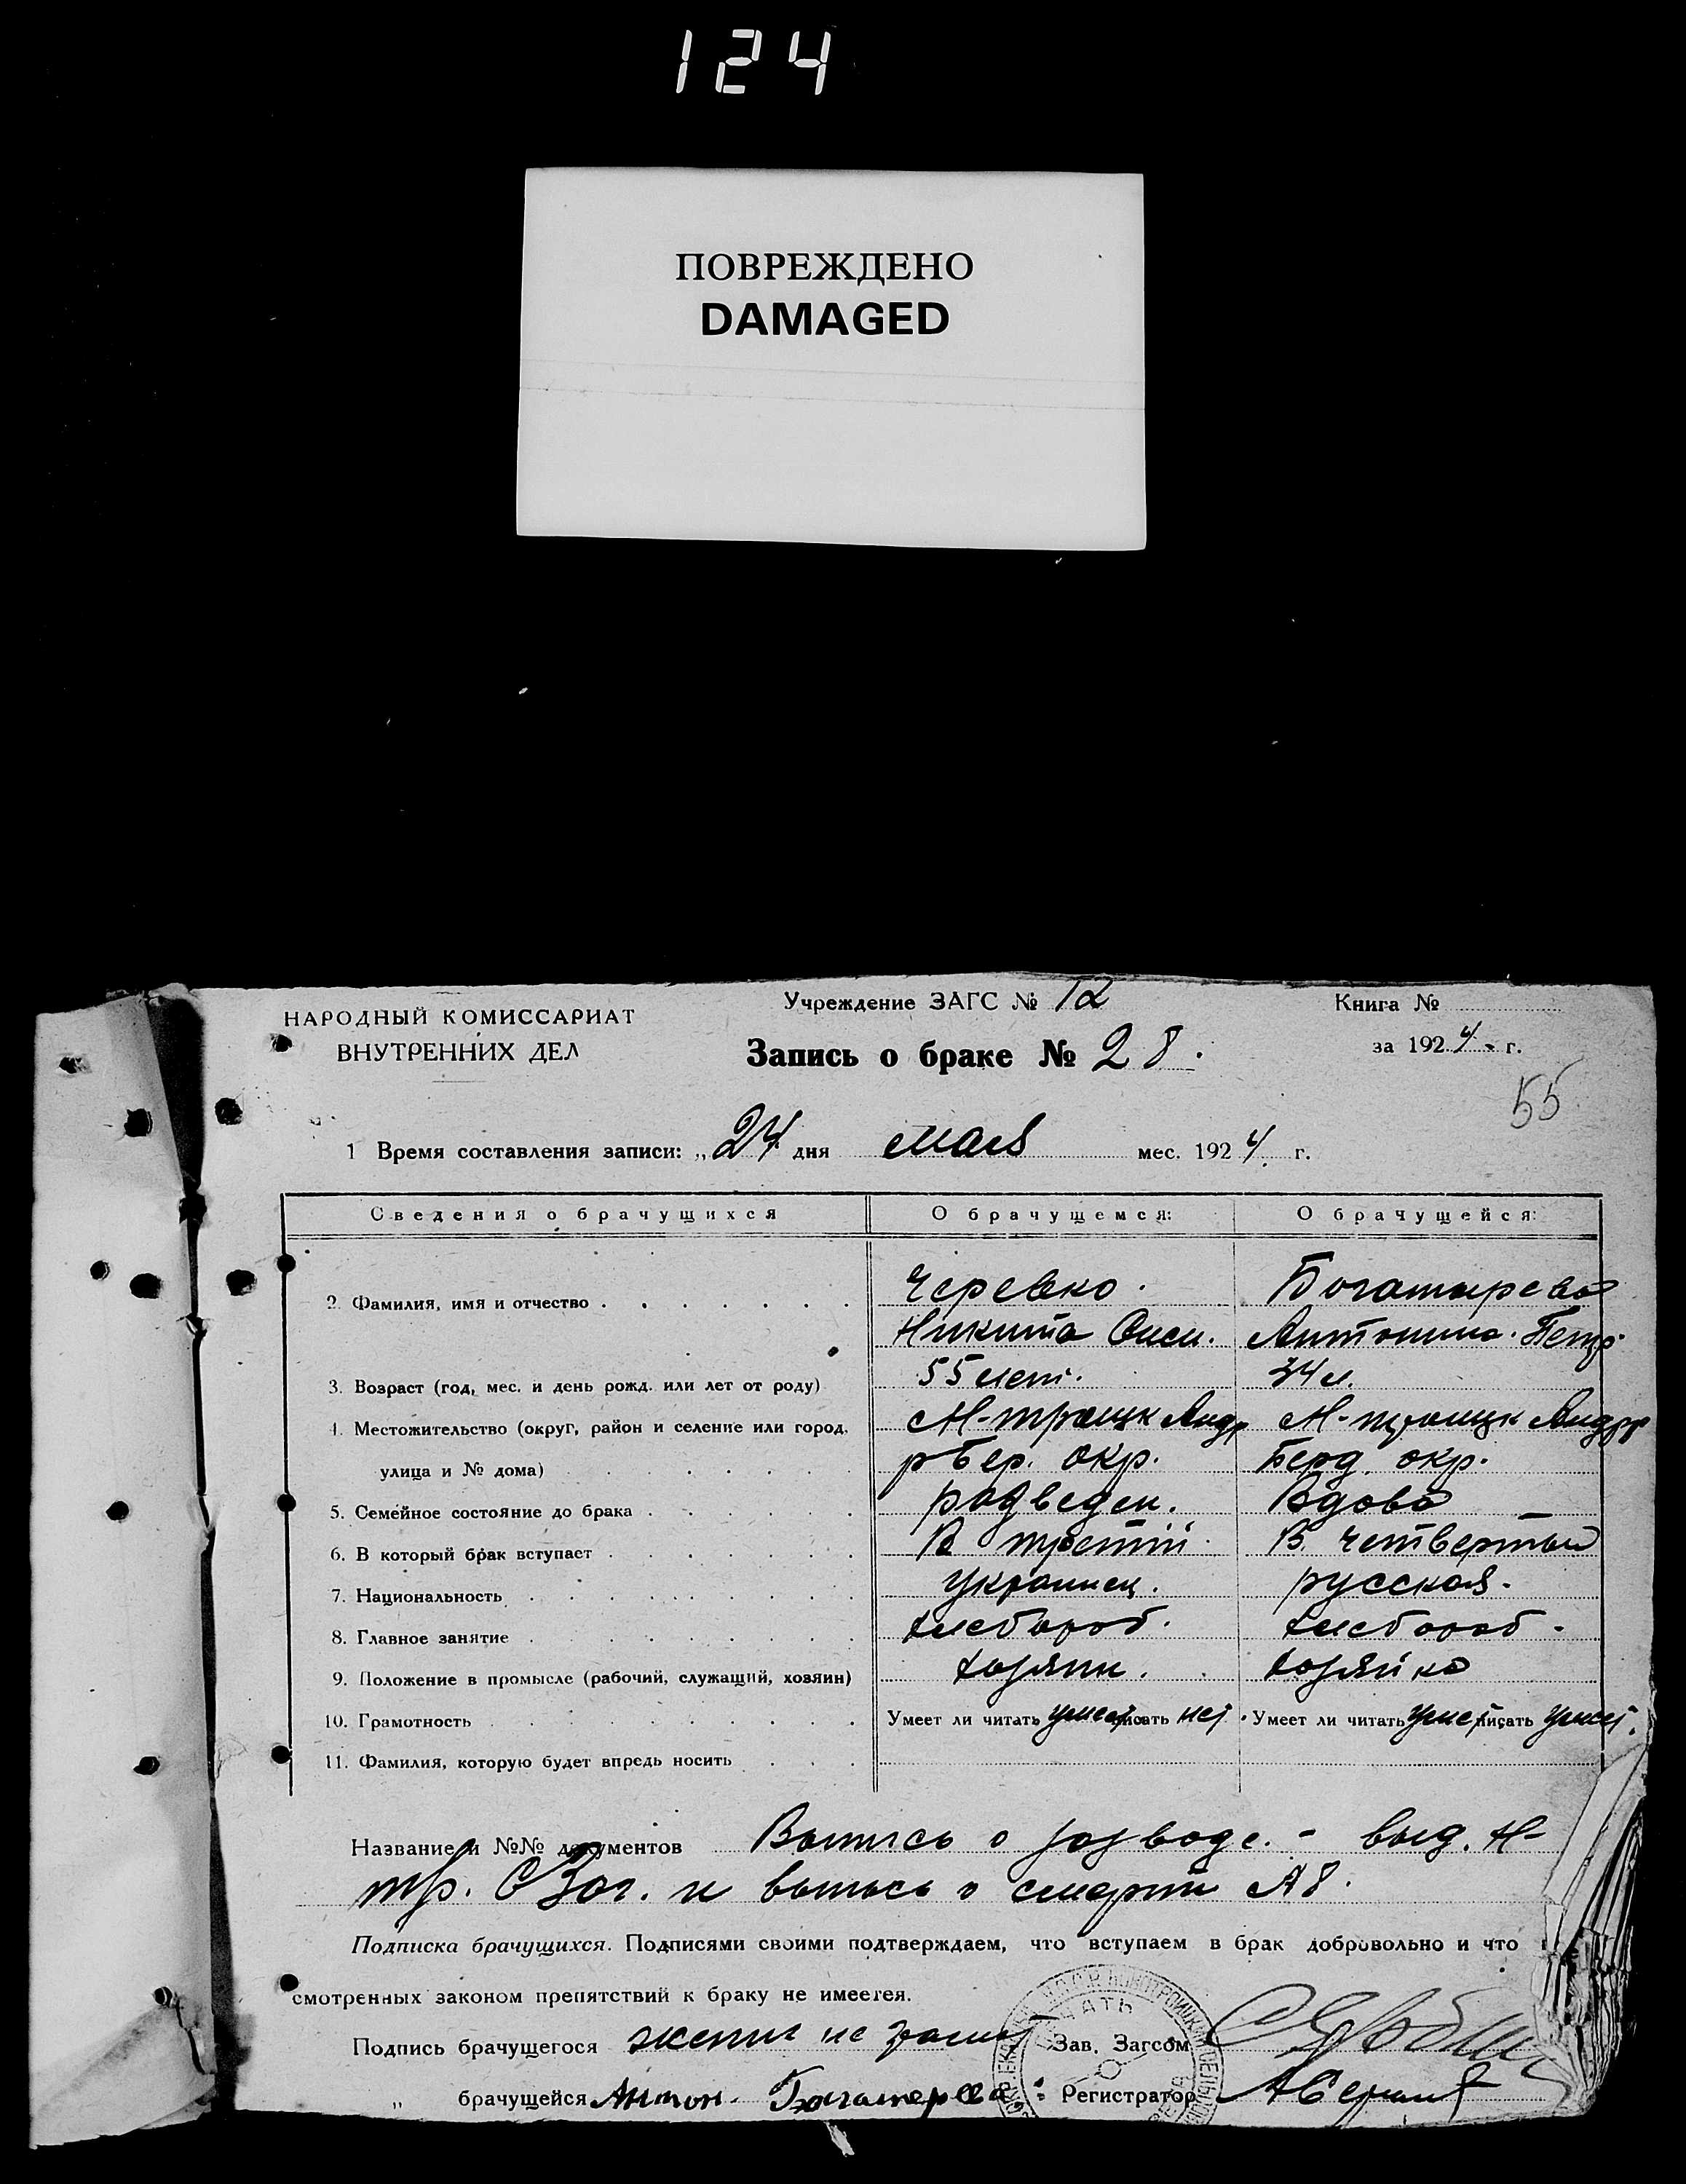 124
ПОВРЕЖДЕНО
DAMAGED
НАРОДНЫЙ КОМИССАРИАТ
ВНУТРЕННИХ ДЕЛ
Учреждение ЗАГС № 12
Книга №
Запись о браке № 28.
за 1924 г.
55
1 Время составления записи: „24 дня мая мес. 1924 г.
Сведения о брачущихся О брачущемся: О брачущейся:
2. Фамилия, имя и отчество Черевко. Богатырева
Никита Антонина. Петр.
3. Возраст (год, мес. и день рожд. или лет от роду) 55 лет. 34 л.
4. Местожительство (округ, район и селение или город, М-троицк Андр М-троицк Андр
улица и № дома) р Бер. окр. Берд. окр.
5. Семейное состояние до брака разведен. Вдова
6. В который брак вступает В третий. В. четвертый
7. Национальность украинец. русская.
8. Главное занятие хлебороб. хлебороб.
9. Положение в промысле (рабочий, служащий, хозяин) хозяин. хозяйка
10. Грамотность Умеет ли читать умеет писать нет. Умеет ли читать умеет писать умеет.
11. Фамилия, которую будет впредь носить
Название и №№ документов Выпись о разводе. - выд. Н-
тр. Заг. и выпись о смерти
Подписка брачущихся. Подписями своими подтверждаем, что вступаем в брак добровольно и что
смотренных законом препятствий к браку не имеется.
Подпись брачущегося жених не Зав. Загсом
„ брачущейся Антон. Богатырева Регистратор
ПЕЧАТЬ